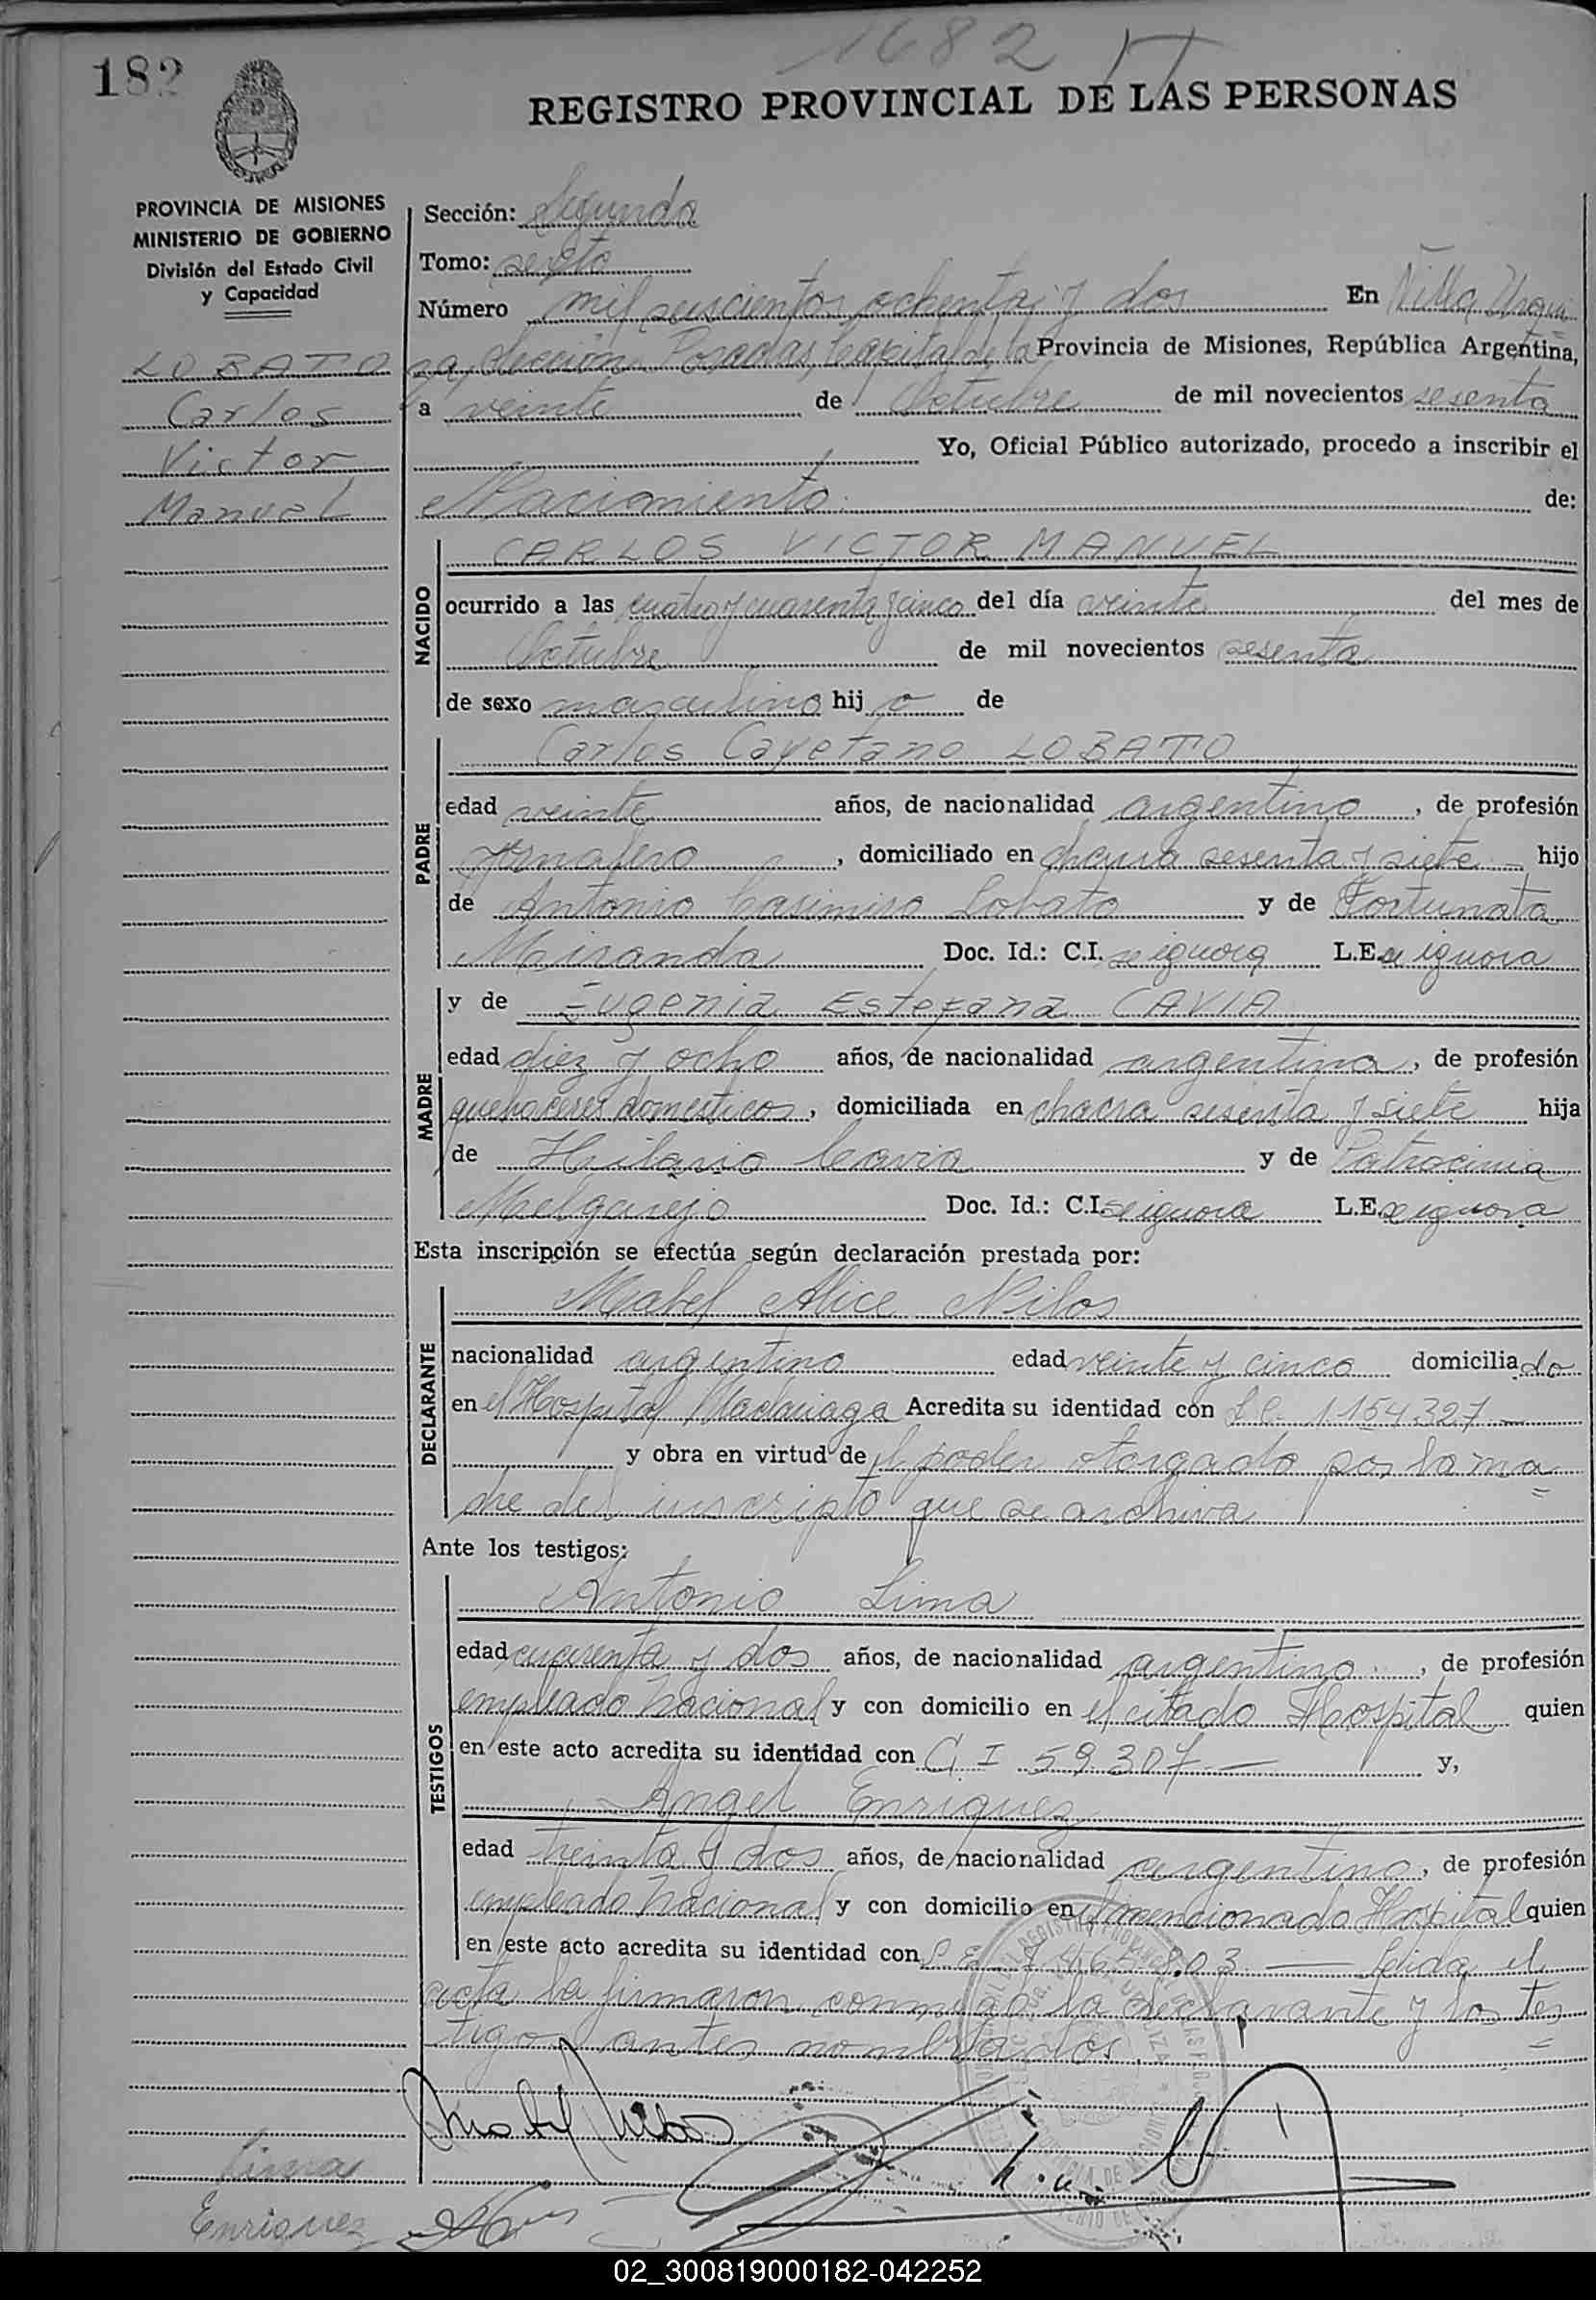 1682 T
182
REGISTRO PROVINCIAL DE LAS PERSONAS
PROVINCIA DE MISIONES
MINISTERIO DE GOBIERNO
División del Estado Civil
y Capacidad
LOBATO
Carlos
Victor
Manuel
Sección: Segunda
Tomo: sexto
Número mil seiscientos ochenta y dos En Villa Urqui
za, Sección Posadas, Capital de la Provincia de Misiones, República Argentina,
a veinte de Octubre de mil novecientos sesenta
Yo, Oficial Público autorizado, procedo a inscribir el
Nacimiento de:
NACIDO
CARLOS VICTOR MANUEL
ocurrido a las cuatro y cuarenta y cinco del día veinte del mes de
Octubre de mil novecientos sesenta
de sexo masculino hijo de
PADRE
Carlos Cayetano LOBATO
edad veinte años, de nacionalidad argentino, de profesión
Jornalero, domiciliado en chacra sesenta y siete hijo
de Antonio Casimiro Lobato y de Fortunata
Miranda Doc. Id.: C.I. se ignora L.E. se ignora
MADRE
y de Eugenia Estefana CAVIA
edad diez y ocho años, de nacionalidad argentina, de profesión
quehaceres domesticos, domiciliada en chacra sesenta y siete hija
de Hilario Cavia y de Patrocinia
Melgarejo Doc. Id.: C.I. se ignora L.E. se ignora
Esta inscripción se efectúa según declaración prestada por:
DECLARANTE
Mabel Alice Nilos
nacionalidad argentina edad veinte y cinco domiciliado
en el Hospital Madariaga Acredita su identidad con L.C. 1.154.327 —
y obra en virtud de el poder otorgado por la ma
dre del inscripto que se archiva
Ante los testigos:
TESTIGOS
Antonio Lima
edad cuarenta y dos años, de nacionalidad argentino, de profesión
empleado nacional y con domicilio en el citado Hospital quien
en este acto acredita su identidad con C. I 59.307 — y,
Angel Enriquez
edad treinta y dos años, de nacionalidad argentino, de profesión
empleado nacional y con domicilio en el mencionado Hospital quien
en este acto acredita su identidad con — Leida el
acta la firmaron conmigo la declarante y los tes
tigos antes nombrados.
Mabel Nilos
Lima
Enriquez
02_300819000182-042252